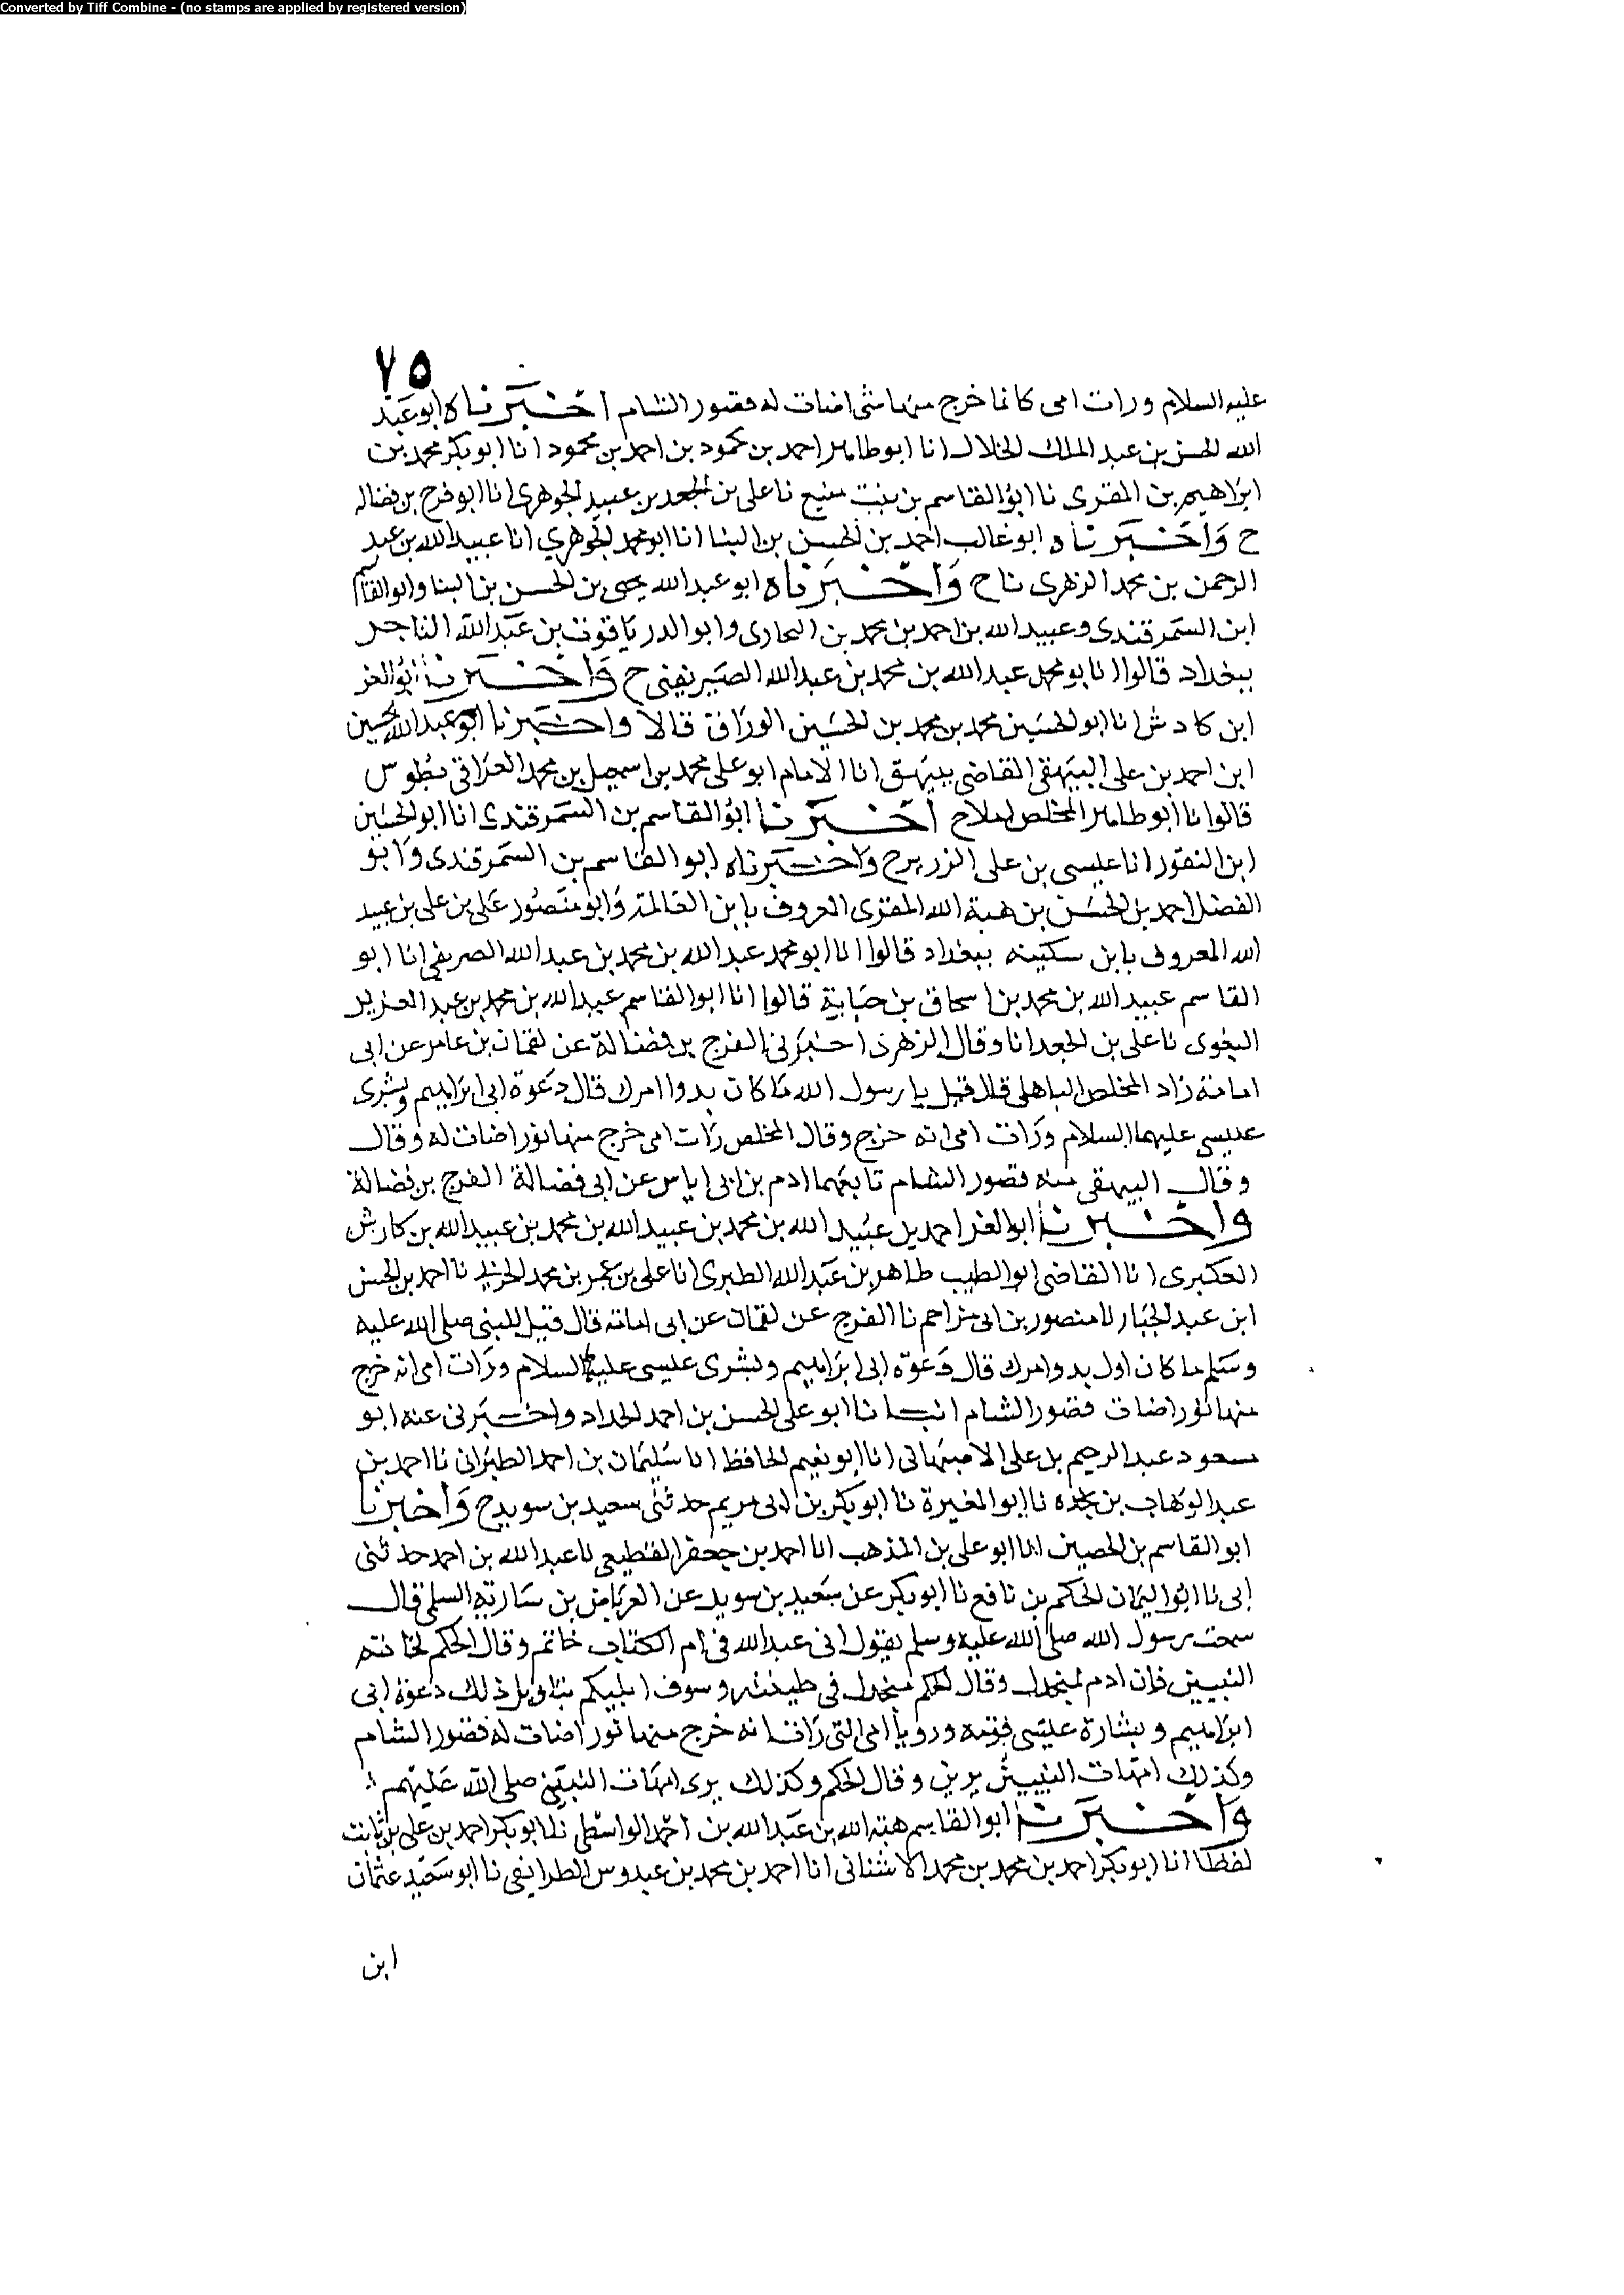 Converted by Tiff Combine - (no stamps are applied by registered version)
٧٥
عليه السلام ورات امى كانما خرج منها شى اضات له قصور الشام اخبرناه ابو عبد
الله الحسن بن عبد الملك الخلال انا ابو طاهر احمد بن محمود بن احمد بن محمود انا ابو بكر محمد بن
ابراهيم بن المقرى نا ابو القاسم بن بنت منيع نا على بن الجعد بن عبيد الجوهرى انا ابو فرج بن فضاله
ح واخبرناه ابو غالب احمد بن الحسن بن البنا انا ابو محمد الجوهري انا عبيد الله بن عبد
الرحمن بن محمد الزهرى ناح واخبرناه ابو عبد الله يحيى بن الحسن بن البنا وابو القاسم
ابن السمرقندى وعبيد الله بن احمد بن محمد بن البخارى وابو الدر ياقوت بن عبد الله التاجر
ببغداد قالوا انا بو محمد عبد الله بن محمد بن عبد الله الصيريفينى ح واخبرنا ابو العز
ابن كادش انا ابو الحسين محمد بن محمد بن الحسين الوراق قالا واخبرنا ابو عبد الله الحسين
ابن احمد بن على البيهقى القاضى ببيهق انا الامام ابو على محمد بن اسمعيل بن محمد العراقى بطوس
قالوا انا ابو طاهر المخلص املاح اخبرنا ابو القاسم بن السمرقندى انا ابو الحسين
ابن النقور انا عيسى بن على الزربرح واخبرناه ابو القاسم بن السمرقندى وابو
الفضل احمد بن الحسن بن هبة الله المقرى المعروف بابن العالمة وابو منصور على بن على بن عبيد
الله المعروف بابن سكينه ببغداد قالوا انا ابو محمد عبد الله بن محمد بن عبد الله الصريفى انا ابو
القاسم عبيد الله بن محمد بن اسحاق بن حبابة قالوا انا ابو القاسم عبد الله بن محمد بن عبد العزيز
البغوى نا على بن الجعد انا وقال الزهرى اخبرنى الفرج بن فضالة عن لقمان بن عامر عن ابى
امامة زاد المخلص الباهلى قال قيل يا رسول الله ما كان بدوا امرك قال دعوة ابى ابراهيم وبشرى
عيسى عليهما السلام ورات امى انه خرج وقال المخلص رات امى خرج منها نور اضات له وقال
وقال البيهقى منه قصور الشام تابعهما ادم بن ابى اياس عن ابى فضالة الفرج بن فضالة
واخبرنا ابو العز احمد بن عبيد الله بن محمد بن عبيد الله بن محمد بن عبيد الله بن كادش
العكبرى انا القاضى ابو الطيب طاهر بن عبد الله الطبرى انا على بن عمر بن محمد الحربى نا احمد بن الحسن
ابن عبد الجبار نا منصور بن ابى مزاحم نا الفرج عن لقمان عن ابى امامة قال قيل للنبى صلى الله عليه
وسلم ما كان اول بدو امرك قال دعوة ابى ابراهيم وبشرى عيسى عليهما السلام ورات امى انه خرج
منها نور اضات قصور الشام انبانا ابو على الحسن بن احمد الحداد واخبرنى عنه ابو
مسعود عبد الرحيم بن على الاصبهانى انا ابو نعيم الحافظ انا سليمان بن احمد الطبرانى نا احمد بن
عبد الوهاب بن نجده نا ابو المغيرة نا ابو بكر بن ابى مريم حدثنى سعيد بن سويدح واخبرنا
ابو القاسم بن الحصين انا ابو على بن المذهب انا احمد بن جعفر القطيعى نا عبد الله بن احمد حدثنى
ابى نا ابو اليمان الحكم بن نافع نا ابو بكر عن سعيد بن سويد عن العرباض بن سارية السلمى قال
سمعت رسول الله صلى الله عليه وسلم يقول انى عبد الله فى ام الكتاب خاتم وقال الحكم لخاتم
النبيين فان ادم لمنجدل وقال الحكم منجدل فى طينته وسوف انبئكم بتاويل ذلك دعوة ابى
ابراهيم وبشارة عيسى قومه ورويا امى التى رات انه خرج منها نور اضات له قصور الشام
وكذلك امهات النبيين يرين وقال الحكم وكذلك يرى امهات النبيين صلى الله عليهم
واخبرنا ابو القاسم هبة الله بن عبد الله بن احمد الواسطى نا ابو بكر احمد بن على بن ثابت
لفظا انا ابو بكر احمد بن محمد بن محمد الاشنانى انا احمد بن محمد بن عبدوس الطرايفى نا ابو سعيد عثمان
ابن